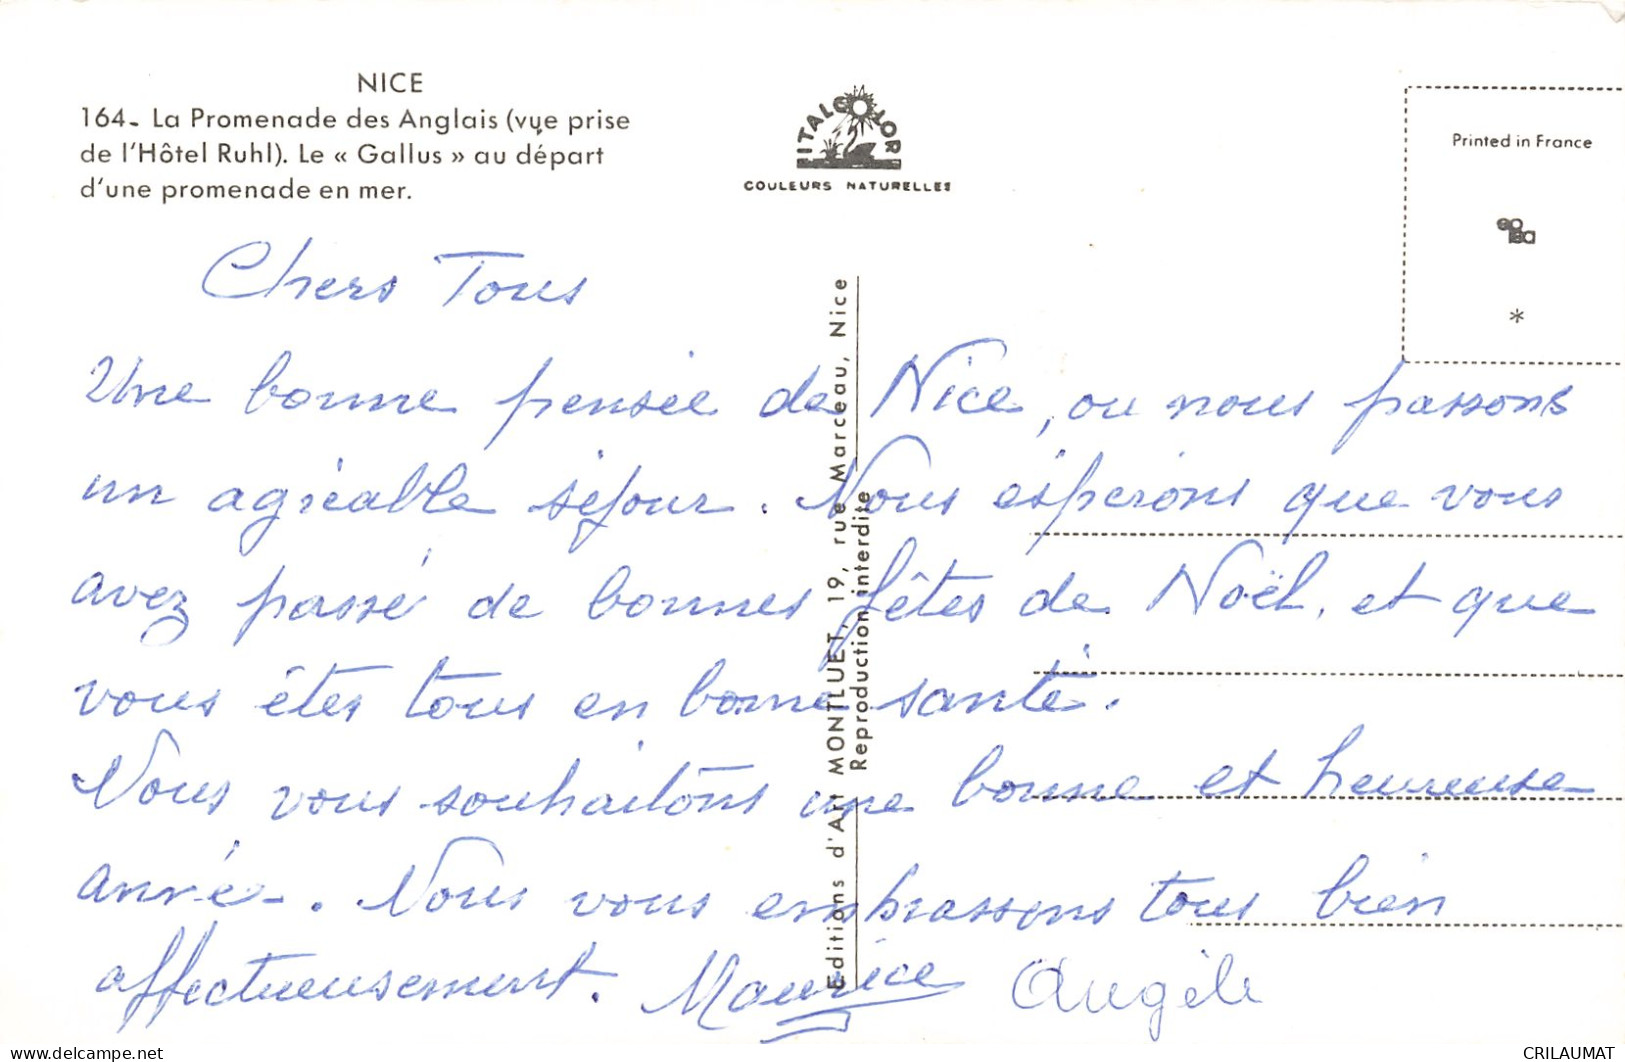 NICE
164- La Promenade des Anglais (vue prise
de l'Hôtel Ruhl). Le « Gallus » au départ
d'une promenade en mer.
ITALCOLOR
COULEURS NATURELLES
Printed in France
*
Editions d'Art MONTLUET, 19, rue Marceau, Nice
Reproduction interdite
Chers Tous
Une bonne pensée de Nice, ou nous passons
un agréable séjour. Nous éspérons que vous
avez passé de bonnes fêtes de Noël, et que
vous êtes tous en bonne santé.
Nous vous souhaitons une bonne et heureuse
année. Nous vous embrassons tous bien
affectueusement. Maurice Angèle
https://www.delcampe.net
CRILAUMAT